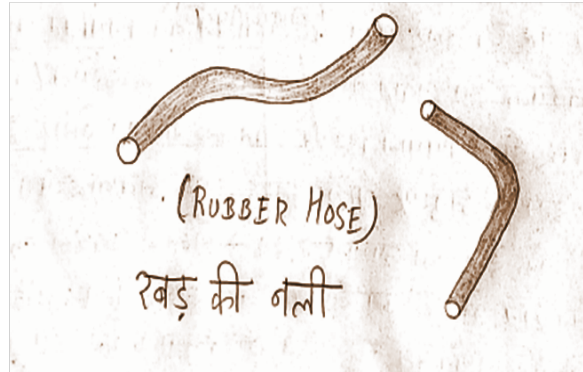 (RUBBER HOSE)
रबड़ की नली